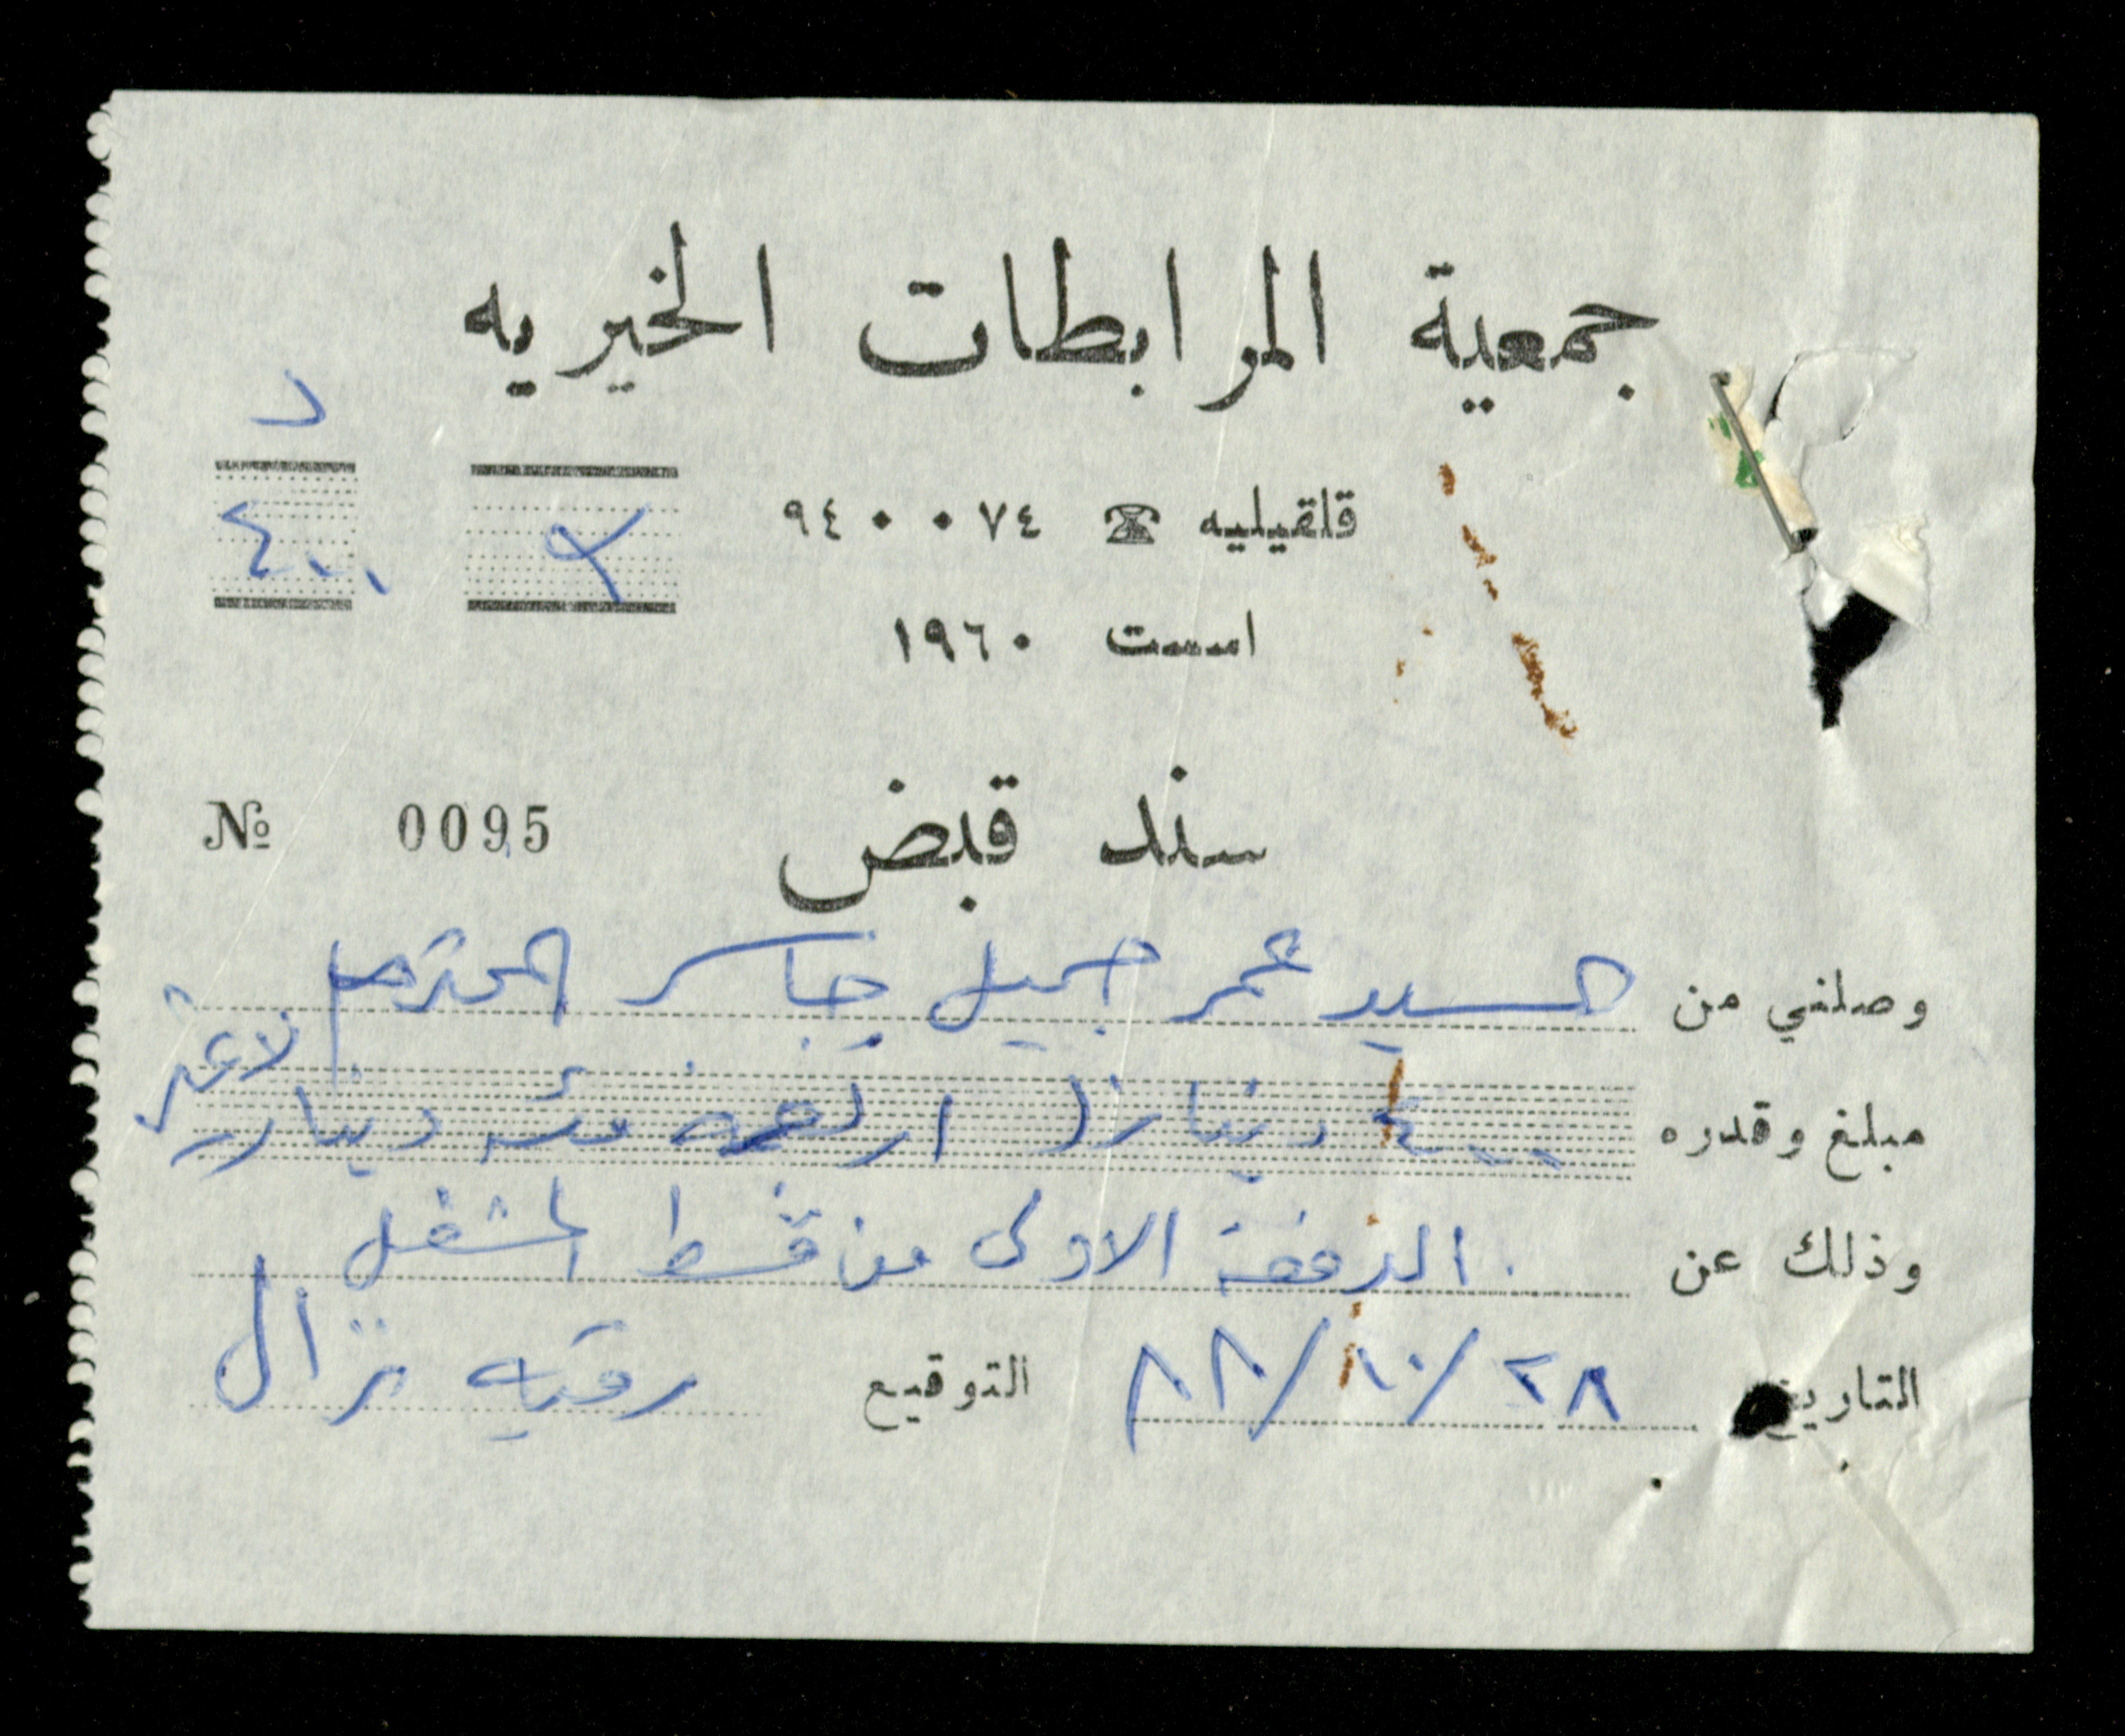 جمعية المرابطات الخيريه
د
قلقيليه ☎ ٩٤٠٠٧٤
٤٠٠
اسست ١٩٦٠
سند قبض
№ 0095
وصلني من السيد عمر جميل جاسر المحترم
مبلغ وقدره ٤٠٠ دينارا اربعمئة دينار لا غير
وذلك عن الدفعة الاولى من قسط المشغل
التاريخ ٢٨/١٠/٨٨ التوقيع رقيه نزال